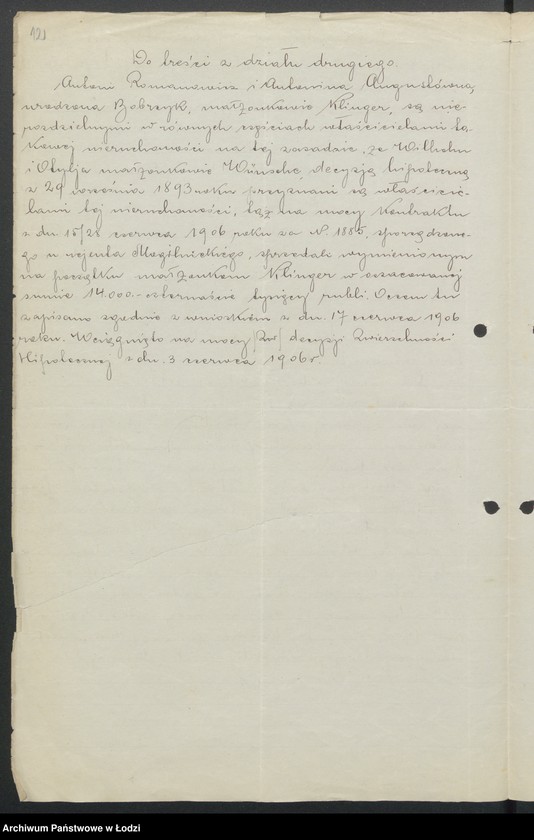 121
Do treści z działu drugiego.
Antoni Romanowicz i Antonina Augustówna,
urodzona Bobrzyk, małżonkowie Klinger, są nie-
podzielnymi w równych częściach właścicielami ta-
kowej nieruchomości na tej zasadzie, że Wilhelm
i Otylja małżonkowie Wünsche, decyzją hipoteczną
z 29 września 1893 roku przyznani są właścicie-
lami tej nieruchomości, tąż na mocy Kontraktu
z dn. 15/28 czerwca 1906 roku za N. 1885, sporządzone-
go u rejenta Mogilnickiego, sprzedali wymienionym
na początku małżonkom Klinger w oszacowanej
sumie 14.000.- czternaście tysięcy rubli. O czem tu
zapisano zgodnie z wnioskiem z dn. 17 czerwca 1906
roku. Wciągnięto na mocy decyzji Zwierzchności
Hipotecznej z dn. 3 czerwca 1906 r.
Archiwum Państwowe w Łodzi